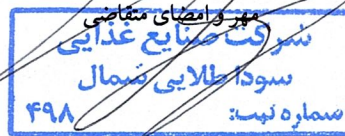 مهر و امضای متقاضی
شرکت صنایع غذایی
سودا طلایی شمال
شماره ثبت: ۴۹۸